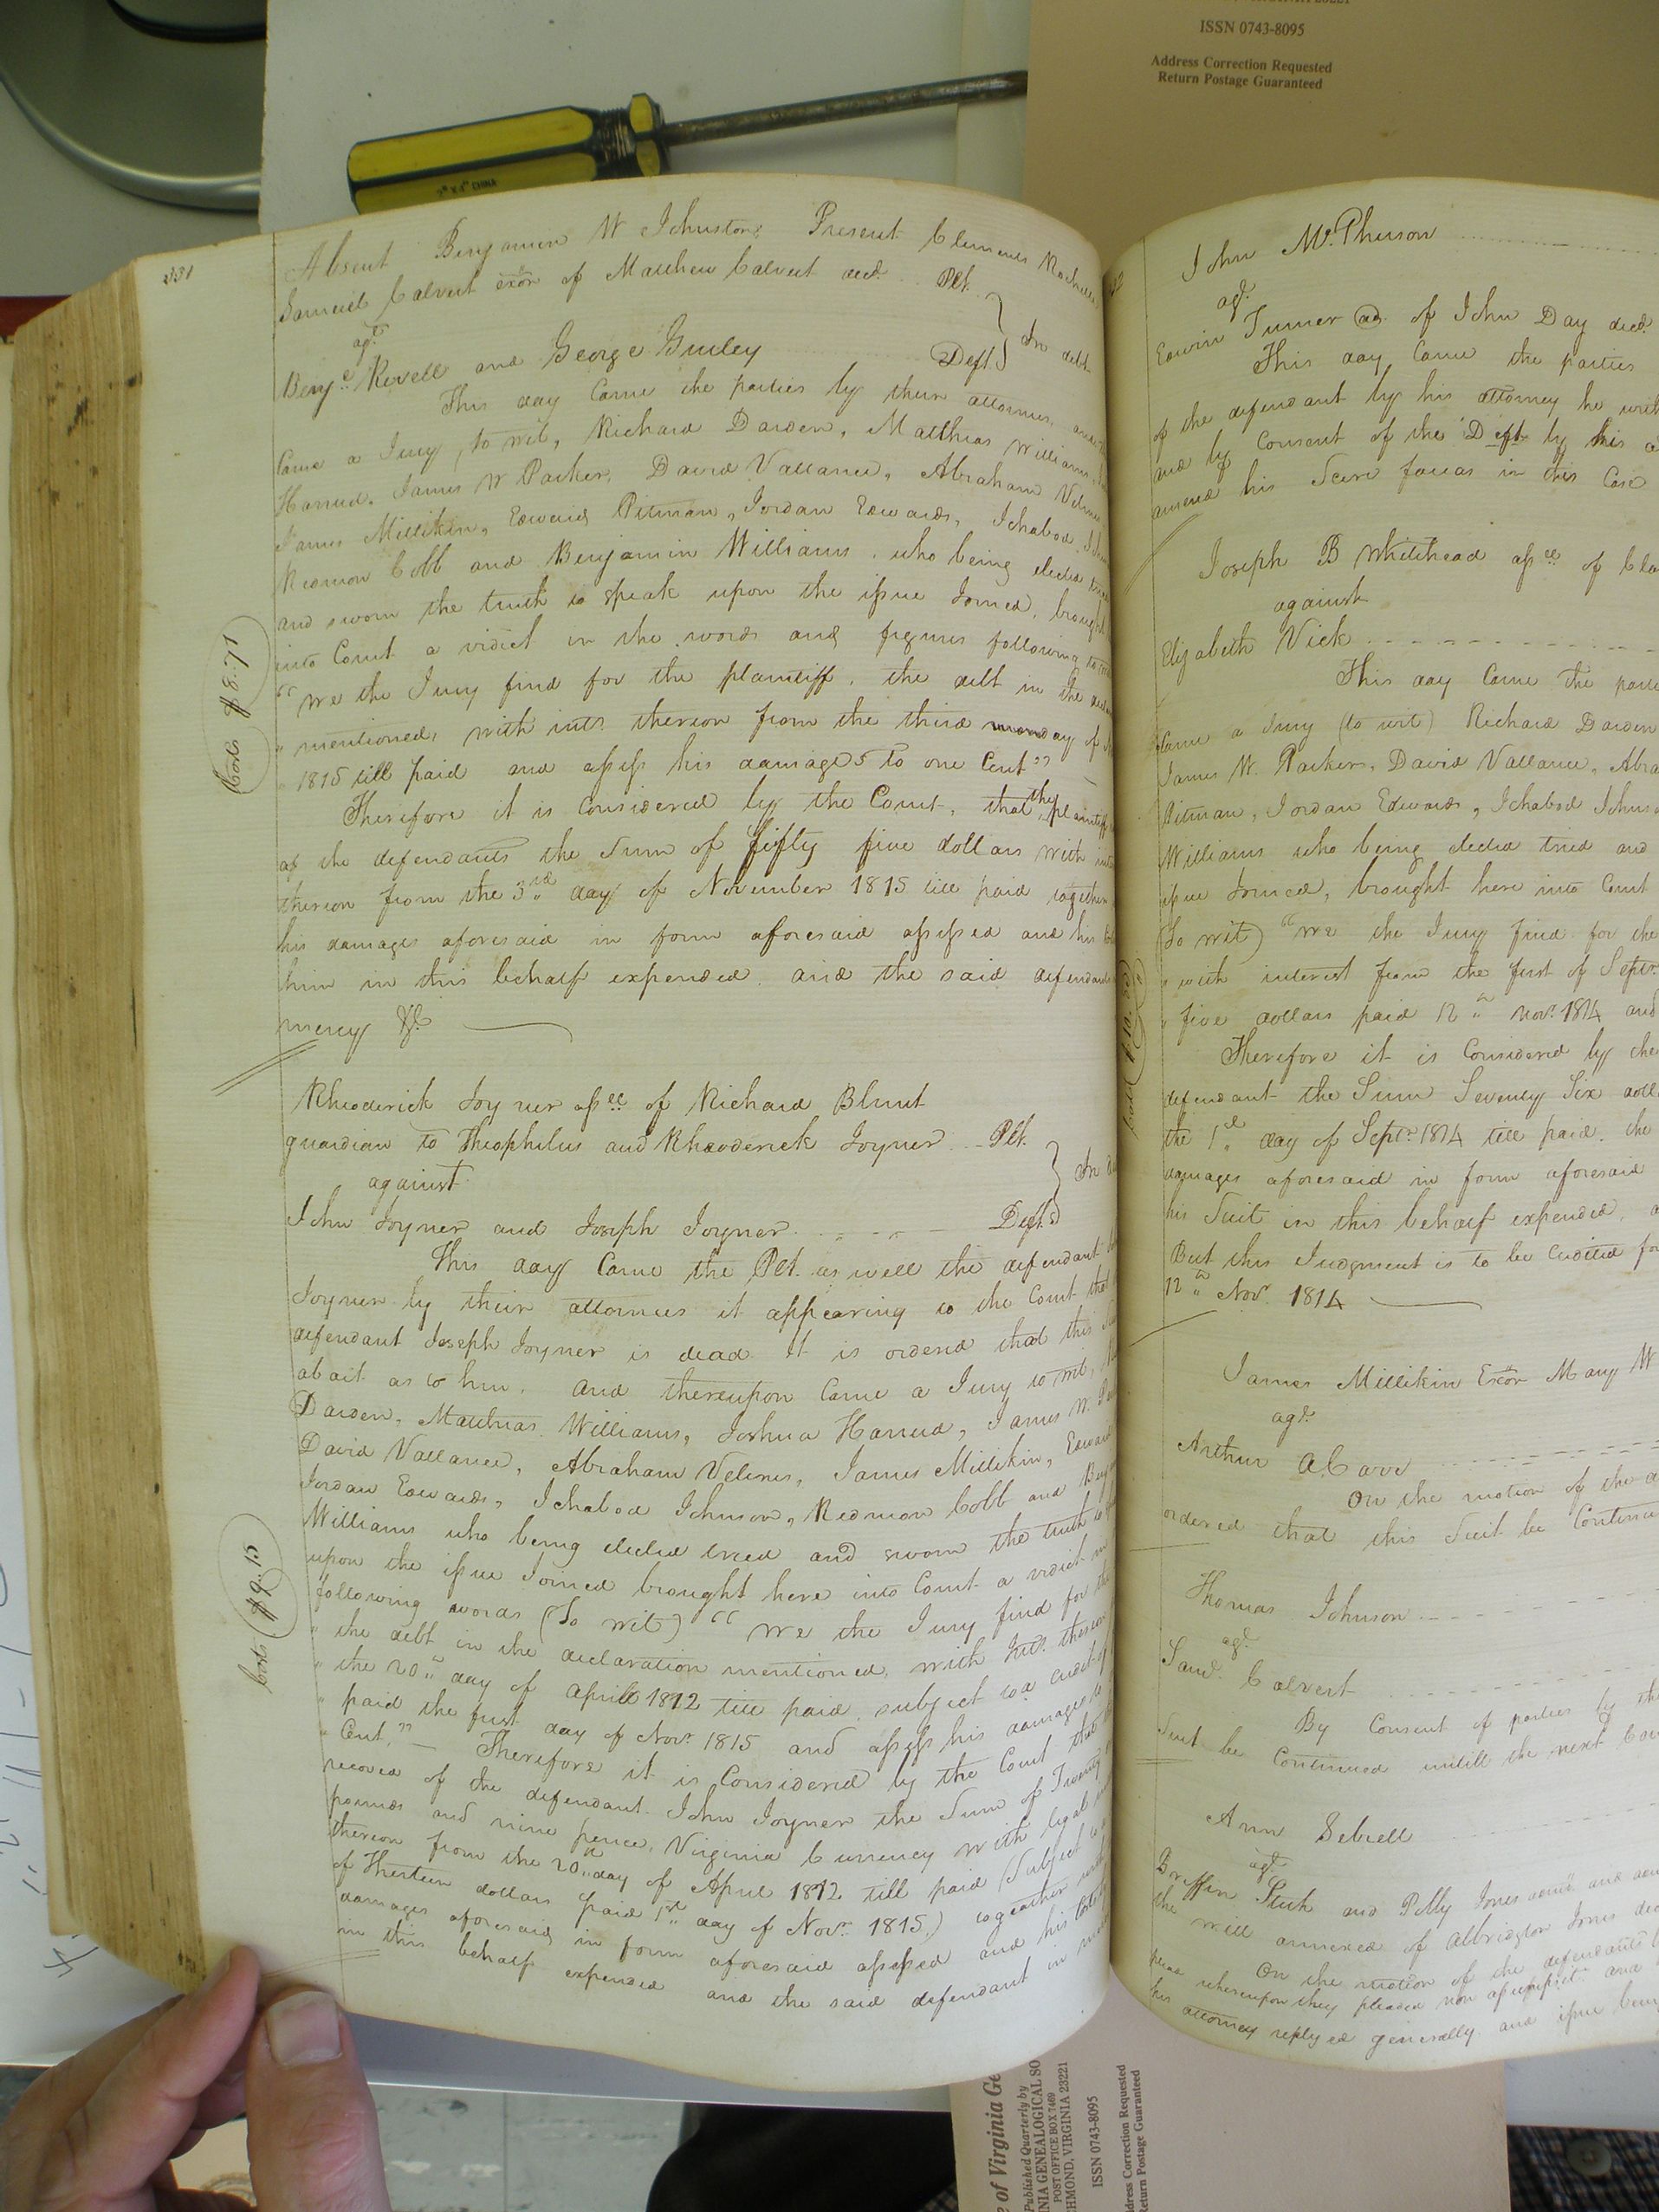 ISSN 0743-8095
Address Correction Requested
Return Postage Guaranteed
CHINA
331
Absent Benjamin W Johnston; Present Clements Rochelle
Samuel Calvert exōr of Matthew Calvert decd. Plt.
agt.
In debt
Benja. Revell and George Gurley Deft
This day Came the parties by their attornies, and
Came a Jury, to wit, Richard Darden, Matthias Williams,
Harred. James W Parker, David Vallance, Abraham
James Millikin, Edward Pitman, Jordan Edwards, Ichabod
Redmon Cobb and Benjamin Williams, who being elected tried
and sworn the truth to speak upon the issue Joined, brought
into Court a virdict in the words and figures following to wit
"We the Jury find for the plaintiff, the debt in the
" mentioned, with intt. thereon from the third monday of
" 1815 till paid and assess his damages to one Cent" —
Costs $8.71
Therefore it is Considered by the Court, that the plaintiff
of the defendants the Sum of fifty five dollars with
thereon from the 3rd day of November 1815 till paid together
his damages aforesaid in form aforesaid assessed and his
him in this behalf expended. and the said defendants
mercy &c
Rhoderick Joyner assee of Richard Blunt
guardian to Theophilus and Rhoderick Joyner Plt.
against
In
John Joyner and Joseph Joyner Defts
This day Came the Plt. as well the defendant
Joyner by their attornies it appearing to the Court that
defendant Joseph Joyner is dead It is ordered that this
abait as to him. and thereupon Came a Jury to wit,
Darden, Matthias Williams, Joshua Harred, James W.
David Vallance, Abraham James Millikin, Edward
Jordan Edwards, Ichabod Johnson, Redmon Cobb and
Williams who being elected tried and sworn the truth to
upon the issue Joined brought here into Court a virdict in
following words (To wit) "We the Jury find for the
" the debt in the declaration mentioned, with Intt. thereon
" the 20th day of aprill 1812 till paid, subject to a credit of
" paid the first day of Novr. 1815 and assess his damages to
" Cent," — Therefore it is Considered by the Court that
Costs $9.15
recover of the defendant John Joyner the Sum of Twenty
pounds and nine pence, Virginia Currency with legal
thereon from the 20th day of April 1812 till paid (Subject to
of Thirteen dollars paid 1st day of Novr. 1815) together with
damages aforesaid in form aforesaid assessed and his Costs
in this behalf expended and the said defendant in
John McPherson
agt.
Edwin Turner ad. of John Day decd.
This day Came the parties
of the defendant by his attorney he
and by Consent of the Deft by his
amend his Scire facias in this Case
Joseph B Whitehead assee of
against
Elizabeth Vick
This day Came the
Came a Jury (to wit) Richard Darden
James W. Parker, David Vallance,
Pitman, Jordan Edwards, Ichabod
Williams who being elected tried and
issue Joined, brought here into Court
(To wit) "We the Jury find for the
" with interest from the first of Septr.
" five dollars paid 12th novr. 1814 and
Therefore it is Considered by the
defendant the Sum Seventy Six
the 1st day of Septr. 1814 till paid. the
damages aforesaid in form aforesaid
his Suit in this behalf expended,
But this Judgment is to be Credited for
12th Novr. 1814
James Millikin Exōr Mary W
agt.
Arthur A Carr
On the motion of the
ordered that this Suit be Continued
Thomas Johnson
agt.
Saml. Calvert
By Consent of parties by
Suit be Continued untill the next
Ann Sebrell
agt.
and Polly Jones and
the will annexed of Jones
On the motion of the defendants
pleas whereupon they pleaded non assumpsit and
his attorney replyed generally and issue
of Virginia
Published Quarterly by
VIRGINIA GENEALOGICAL SO
POST OFFICE BOX 7469
RICHMOND, VIRGINIA 23221
ISSN 0743-8095
Address Correction Requested
Return Postage Guaranteed